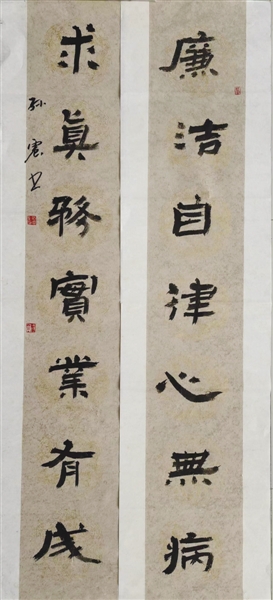 廉洁自律心無病
求真務實業有成
孙宪书